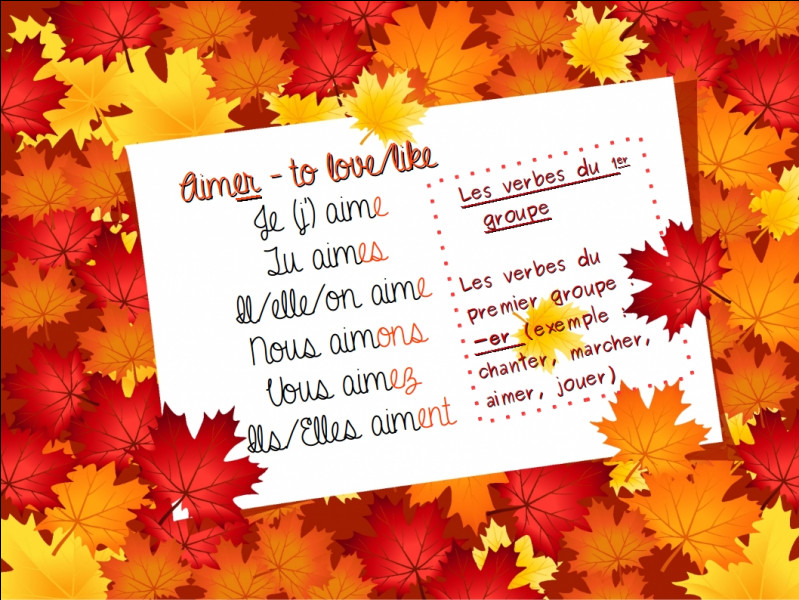 Aimer - to love/like
Je (j') aime
Tu aimes
Il/elle/on aime
Nous aimons
Vous aimez
Ils/Elles aiment
Les verbes du 1er
groupe
Les verbes du
premier groupe :
-er (exemple :
chanter, marcher,
aimer, jouer)